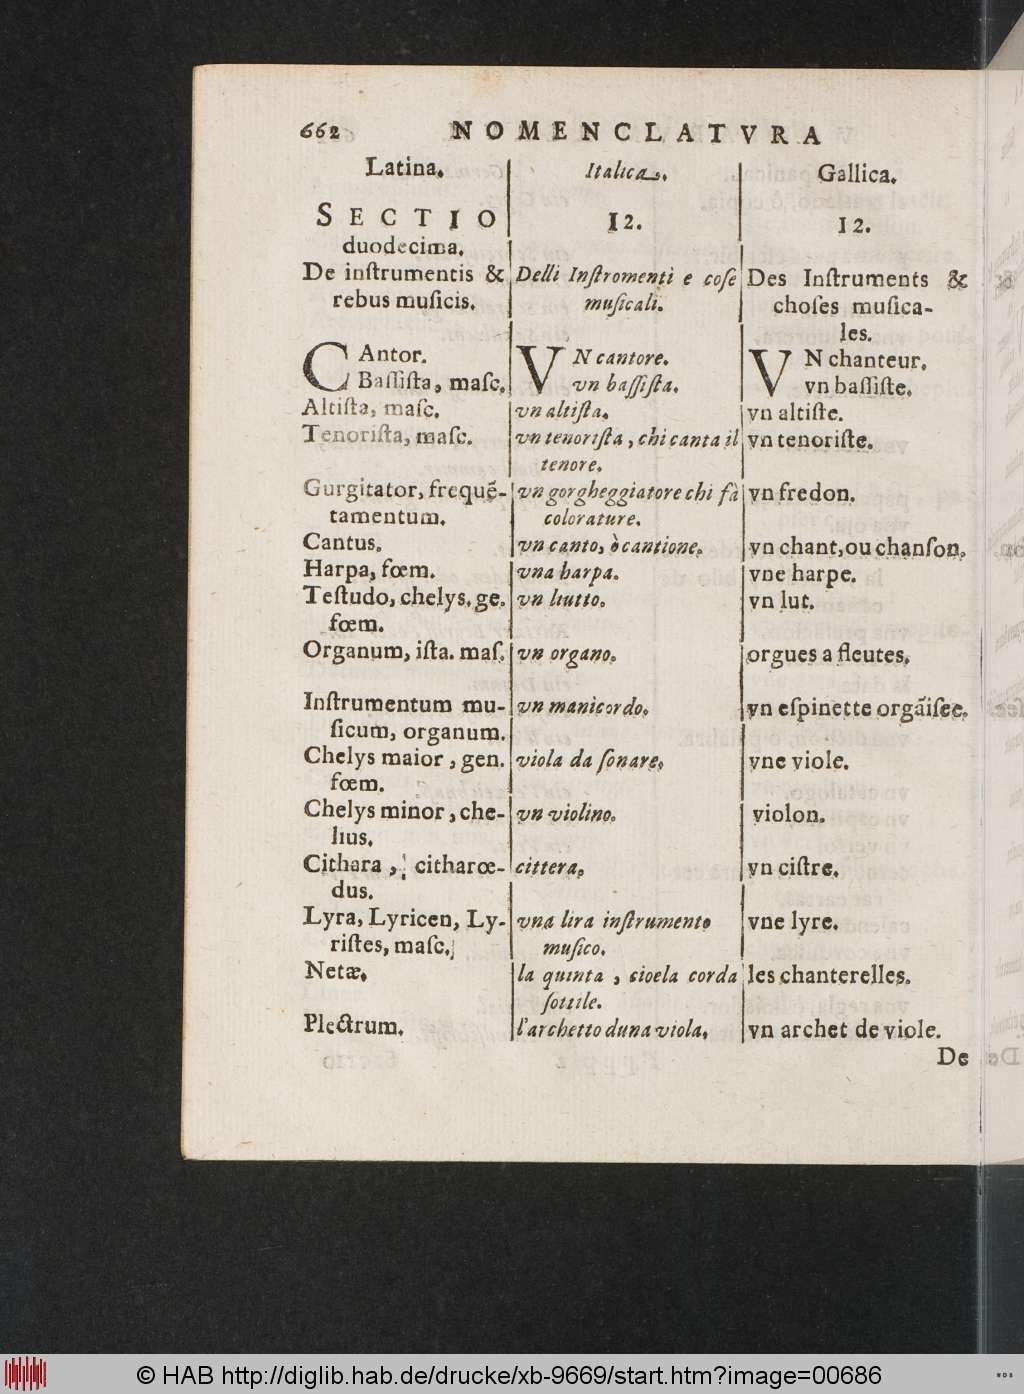 662 NOMENCLATVRA
Latina. Italica. Gallica.
SECTIO 12. 12.
duodecima.
De inſtrumentis & Delli Inſtromenti e coſe Des Inſtruments &
rebus muſicis. muſicali. choſes muſica-
les.
CAntor. VN cantore. VN chanteur.
Baſſiſta, maſc. vn baſſiſta. vn baſſiſte.
Altiſta, maſc. vn altiſta. vn altiſte.
Tenoriſta, maſc. vn tenoriſta, chi canta il vn tenoriſte.
tenore.
Gurgitator, frequẽ- vn gorgheggiatore chi fà vn fredon.
tamentum. colorature.
Cantus. vn canto, ò cantione. vn chant, ou chanſon.
Harpa, fœm. vna harpa. vne harpe.
Teſtudo, chelys. ge. vn liutto. vn lut.
fœm.
Organum, iſta. maſ. vn organo. orgues a fleutes.
Inſtrumentum mu- vn manicordo. vn eſpinette orgãiſee.
ſicum, organum.
Chelys maior, gen. viola da ſonare. vne viole.
fœm.
Chelys minor, che- vn violino. violon.
lius.
Cithara, citharœ- cittera. vn ciſtre.
dus.
Lyra, Lyricen, Ly- vna lira inſtrumento vne lyre.
riſtes, maſc. muſico.
Netæ. la quinta, cioela corda les chanterelles.
ſottile.
Plectrum. l'archetto duna viola. vn archet de viole.
De
© HAB http://diglib.hab.de/drucke/xb-9669/start.htm?image=00686